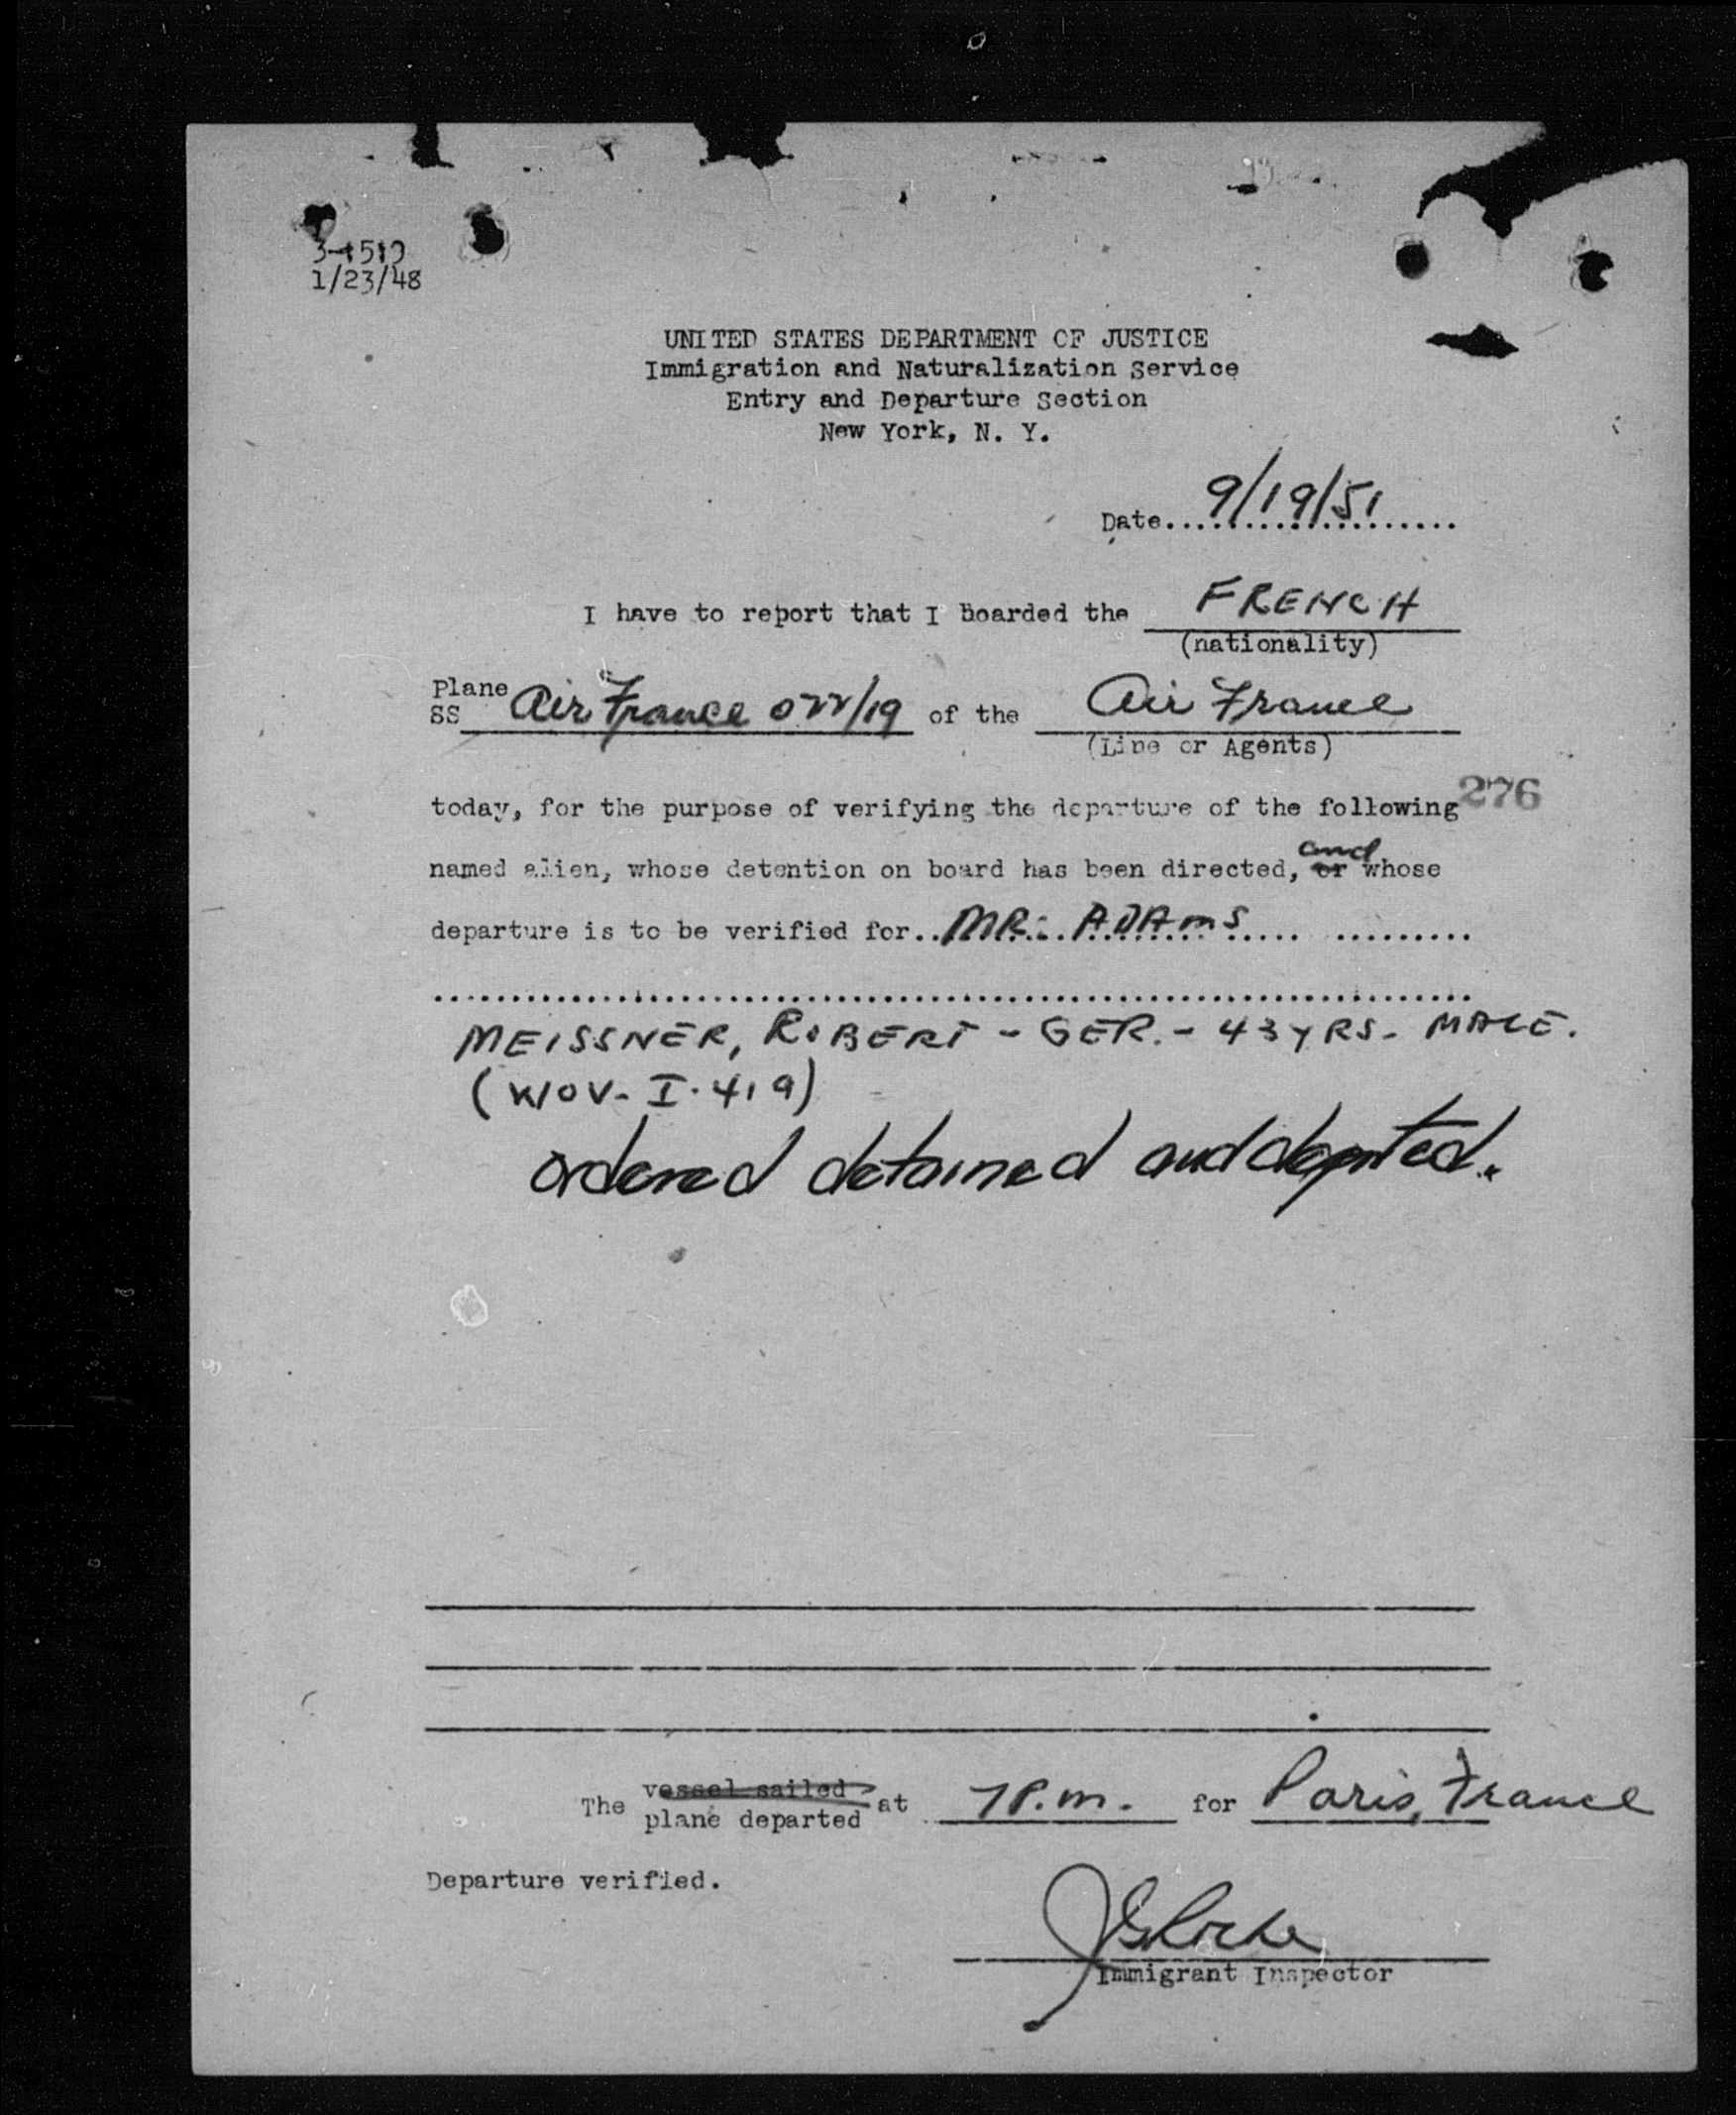 1/23/48
UNITED STATES DEPARTMENT OF JUSTICE
Immigration and Naturalization Service
Entry and Departure Section
New York, N. Y.
Date 9/19/51
I have to report that I boarded the FRENCH
(nationality)
Plane
SS Air France 022/19 of the Air France
(Line or Agents)
276
today, for the purpose of verifying the departure of the following
and
named alien, whose detention on board has been directed, or whose
departure is to be verified for..MR. ADAMS
MEISSNER, ROBERT - GER. - 43 YRS - MALE.
I-419)
ordered detained and deported.
vessel sailed
The plane departed at 7P.m. for Paris, France
Departure verified.
Immigrant Inspector